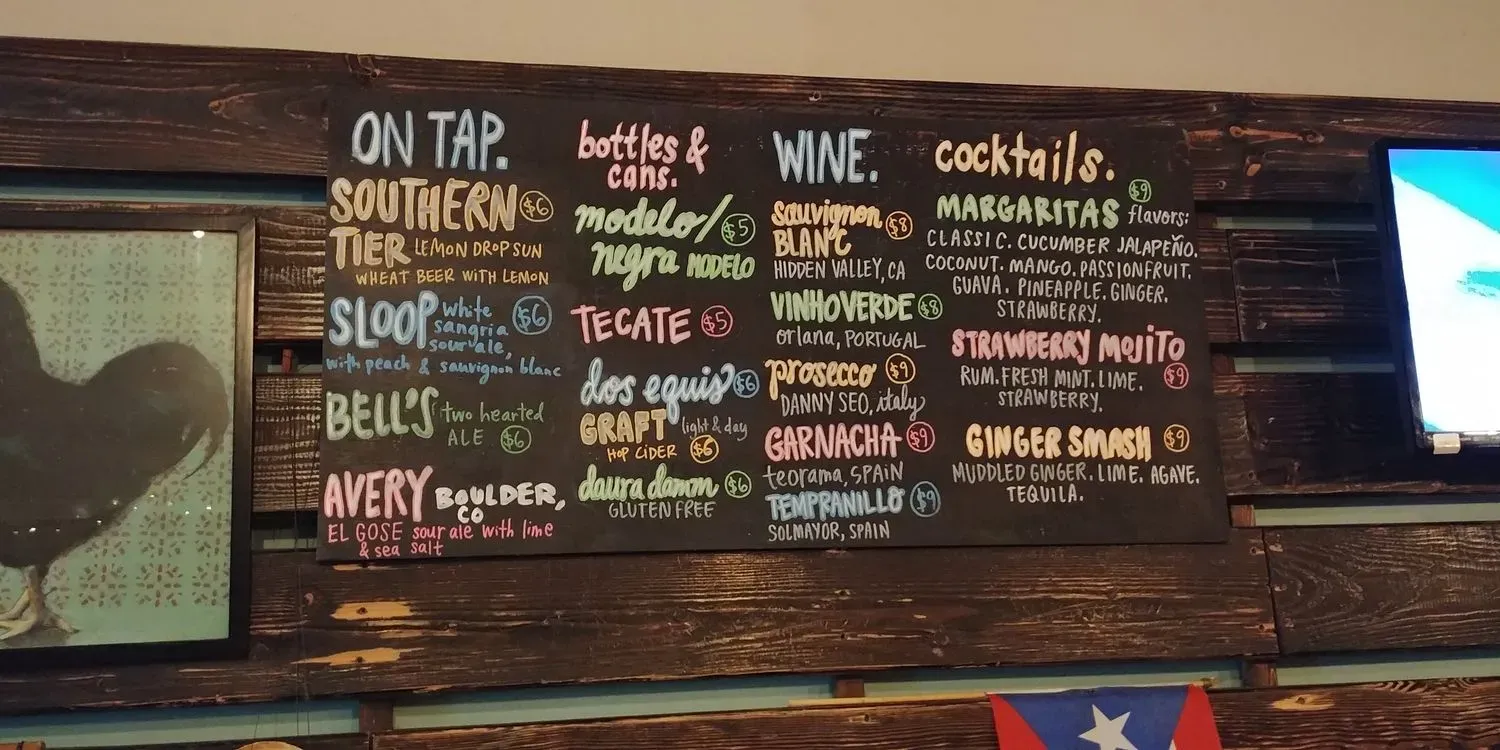 ON TAP.
SOUTHERN $6
TIER LEMON DROP SUN
WHEAT BEER WITH LEMON
SLOOP white $6
sangria
sour ale,
with peach & sauvignon blanc
BELL'S two hearted
ALE $6
AVERY BOULDER,
CO
EL GOSE sour ale with lime
& sea salt
bottles &
cans.
modelo/ $5
negra MODELO
TECATE $5
dos equis $6
GRAFT light & day
HOP CIDER $6
daura damm $6
GLUTEN FREE
WINE.
sauvignon $8
BLANC
HIDDEN VALLEY, CA
VINHO VERDE $8
orlana, PORTUGAL
prosecco $9
DANNY SEO, italy
GARNACHA $9
teorama, SPAIN
TEMPRANILLO $9
SOLMAYOR, SPAIN
cocktails.
$9
MARGARITAS flavors:
CLASSIC. CUCUMBER JALAPEÑO.
COCONUT. MANGO. PASSIONFRUIT.
GUAVA. PINEAPPLE. GINGER.
STRAWBERRY.
STRAWBERRY MOJITO
RUM. FRESH MINT. LIME. $9
STRAWBERRY.
GINGER SMASH $9
MUDDLED GINGER. LIME. AGAVE.
TEQUILA.